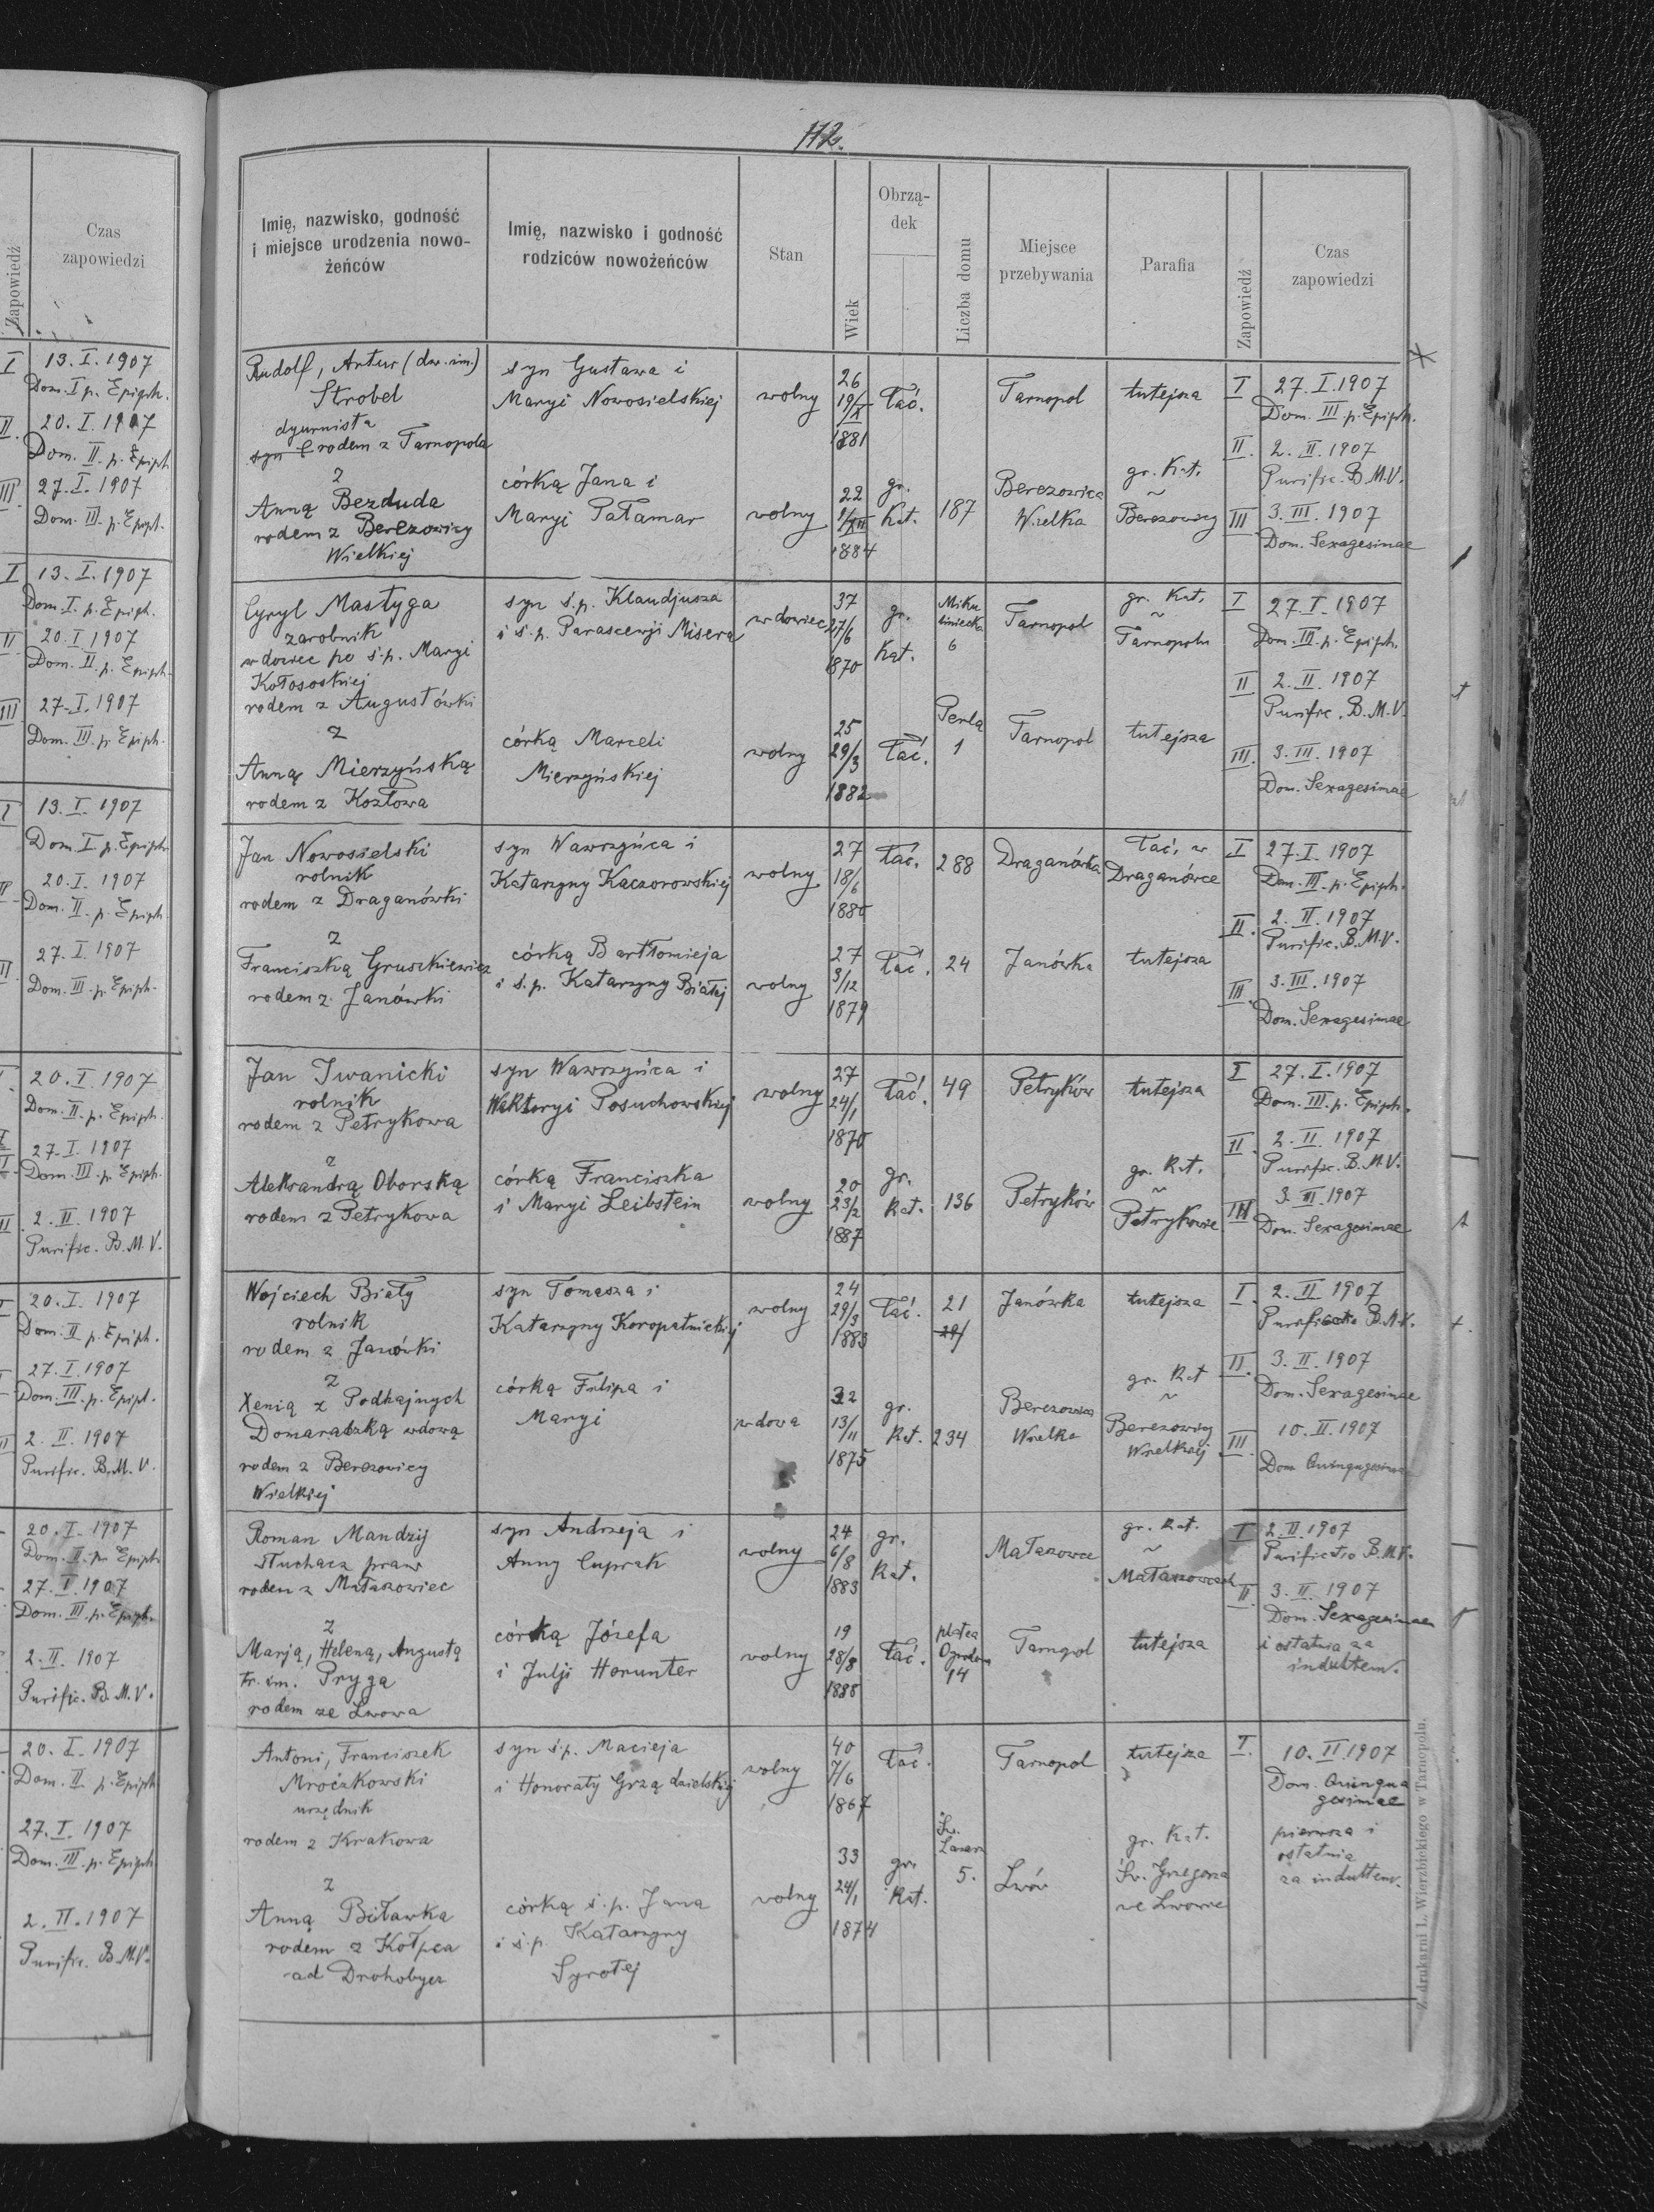 Zapowiedź
Czas
zapowiedzi
I
13. I. 1907
Dom. I p. Epiph.
II
20. I. 1907
Dom. II. p. Epiph
III
27. I. 1907
Dom. III. p. Epiph.
I
13. I. 1907
Dom. I. p. Epiph.
II
20. I 1907
Dom. II. p. Epiph.
III
27. I. 1907
Dom. III. p. Epiph.
I
13. I. 1907
Dom. I p. Epiph.
20. I. 1907
Dom. II. p. Epiph.
27. I. 1907
Dom. III. p. Epiph.
20. I. 1907
Dom. II. p. Epiph.
27. I. 1907
Dom. III. p. Epiph.
2. II. 1907
Purific. B. M. V.
20. I. 1907
Dom. II p. Epiph.
27. I. 1907
Dom. III. p. Epiph.
2. II. 1907
Purific. B. M. V.
20. I. 1907
Dom. II. p. Epiph
27. I. 1907
Dom. III. p. Epiph.
2. II. 1907
Purific. B. M. V.
20. I. 1907
Dom. II. p. Epiph
27. I. 1907
Dom. III. p. Epiph.
2. II. 1907
Purific. B. M. V.
112.
Imię, nazwisko, godność
i miejsce urodzenia nowo-
żeńców
Imię, nazwisko i godność
rodziców nowożeńców
Stan
Wiek
Obrzą-
dek
Liczba domu
Miejsce
przebywania
Parafia
Zapowiedź
Czas
zapowiedzi
Rudolf, Artur (dw. im.)
Strobel
dyurnista
syn rodem z Tarnopola
syn Gustawa i
Maryi Nowosielskiej
wolny
26
19/IX
1881
łać.
Tarnopol
tutejsza
I
27. I. 1907
Dom. III. p. Epiph.
II.
2. II. 1907
Purific. B. M. V.
III
3. III. 1907
Dom. Sexagesimae
z
Anną Bezduda
rodem z Berezowicy
Wielkiej
córką Jana i
Maryi Pałamar
wolny
22
1/XII
1884
gr.
Kat.
187
Berezowica
Wielka
gr. Kat.
~
Berezowicy
Cyryl Mastyga
zarobnik
wdowiec po ś.p. Maryi
Kołososkiej
rodem z Augustówki
syn ś.p. Klaudjusza
i ś.p. Parascewji Misera
wdowiec
37
27/6
1870
gr.
Kat.
Miku
liniecka
6
Tarnopol
gr. Kat.
~
Tarnopolu
I
27. I. 1907
Dom. III. p. Epiph.
II
2. II. 1907
Purific. B. M. V.
III.
3. III. 1907
Dom. Sexagesimae
z
Anną Mierzyńską
rodem z Kozłowa
córką Marceli
Mierzyńskiej
wolny
25
29/3
1882
łać.
Perla
1
Tarnopol
tutejsza
Jan Nowosielski
rolnik
rodem z Draganówki
syn Wawrzyńca i
Katarzyny Kaczorowskiej
wolny
27
18/6
1880
łać.
288
Draganówka
łać. w
Draganówce
I
27. I. 1907
Dom. III. p. Epiph.
II.
2. II. 1907
Purific. B. M. V.
III.
3. III. 1907
Dom. Sexagesimae
z
Franciszką Gruszkiewicz
rodem z Janówki
córką Bartłomieja
i ś.p. Katarzyny Białej
wolny
27
3/12
1879
łać.
24
Janówka
tutejsza
Jan Iwanicki
rolnik
rodem z Petrykowa
syn Wawrzyńca i
Wiktoryi Posuchowskiej
wolny
27
24/1
1870
łać.
49
Petryków
tutejsza
I
27. I. 1907
Dom. III. p. Epiph.
II.
2. II. 1907
Purific. B. M. V.
III
3. II. 1907
Dom. Sexagesimae
z
Aleksandrą Oborską
rodem z Petrykowa
córką Franciszka
i Maryi Leibstein
wolny
20
23/2
1887
gr.
Kat.
136
Petryków
gr. Kat.
~
Petrykowie
Wojciech Biały
rolnik
rodem z Janówki
syn Tomasza i
Katarzyny Koropatnickiej
wolny
24
29/3
1883
łać.
21
Janówka
tutejsza
I.
2. II 1907
Purificatio B. M. V.
II.
3. II. 1907
Dom. Sexagesimae
III.
10. II. 1907
Dom Quinquagesimae
z
Xenią z Podhajnych
Domaradzką wdową
rodem z Berezowicy
Wielkiej
córką Filipa i
Maryi
wdowa
32
13/11
1875
gr.
Kat.
234
Berezowica
Wielka
gr. Kat
~
Berezowicy
Wielkiej
Roman Mandzij
słuchacz praw
rodem z Małaszowiec
syn Andrzeja i
Anny Cuprak
wolny
24
6/8
1883
gr.
Kat.
gr. Kat.
~
I
2. II. 1907
Purificatio B. M. V.
II.
3. II. 1907
Dom. Sexagesimae
i ostatnia za
indultem.
z
Marją, Heleną, Augustą
tr. im. Pryga
rodem ze Lwowa
córką Józefa
i Julji Horunter
wolny
19
28/8
1888
łać.
14
Tarnopol
tutejsza
Antoni, Franciszek
Mroczkowski
urzędnik
rodem z Krakowa
syn ś.p. Macieja
i Honoraty Grządzielskiej
wolny
40
7/6
1867
łać.
Tarnopol
tutejsza
I.
10. II 1907
Dom. Quinqua
gesimae
pierwsza i
ostatnia
za indultem.
z
Anną Biławka
rodem z Kołpca
ad Drohobycz
córką ś.p. Jana
i ś.p. Katarzyny
Syrotej
wolny
33
24/1
1874
gr.
Kat.
Św.
Łazarz
5.
Lwów
gr. Kat.
Św. Grzegorza
we Lwowie
Z drukarni L. Wierzbickiego w Tarnopolu.